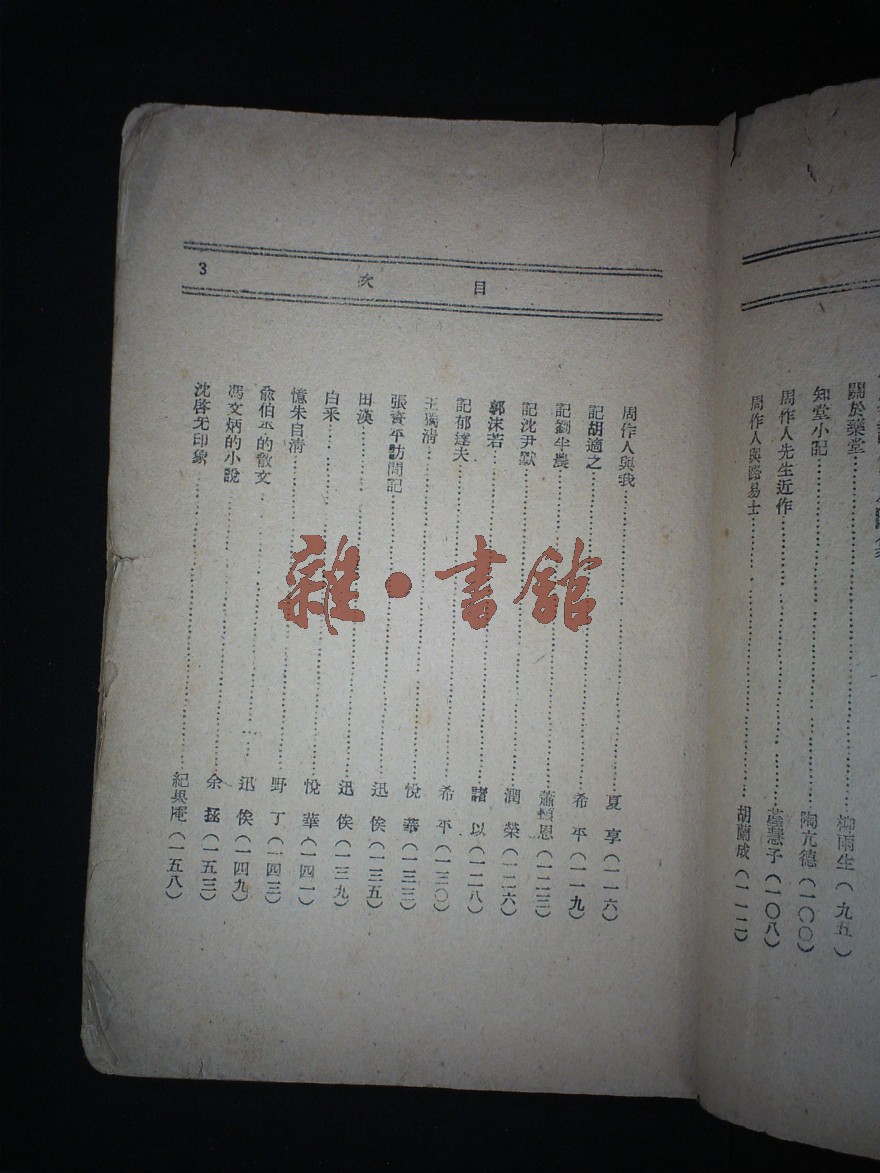 關於藥堂……柳雨生(九五)
知堂小記……陶亢德(一〇〇)
周作人先生近作……慧子(一〇八)
周作人與路易士……胡蘭成(一一二)
目 次
3
周作人與我……夏 享(一一六)
記胡適之……希 平(一一九)
記劉半農……蕭 恩(一二三)
記沈尹默……潤 榮(一二六)
郭沫若……諸 以(一二八)
記郁達夫……希 平(一三〇)
王獨清……悅 華(一三三)
張資平訪問記……迅 俟(一三五)
田漢……迅 俟(一三九)
白采……悅 華(一四一)
憶朱自清……野 丁(一四三)
兪伯平的散文……迅 俟(一四九)
馮文炳的小說……余 拯(一五三)
沈啓无印象……紀果庵(一五八)
雜·書館